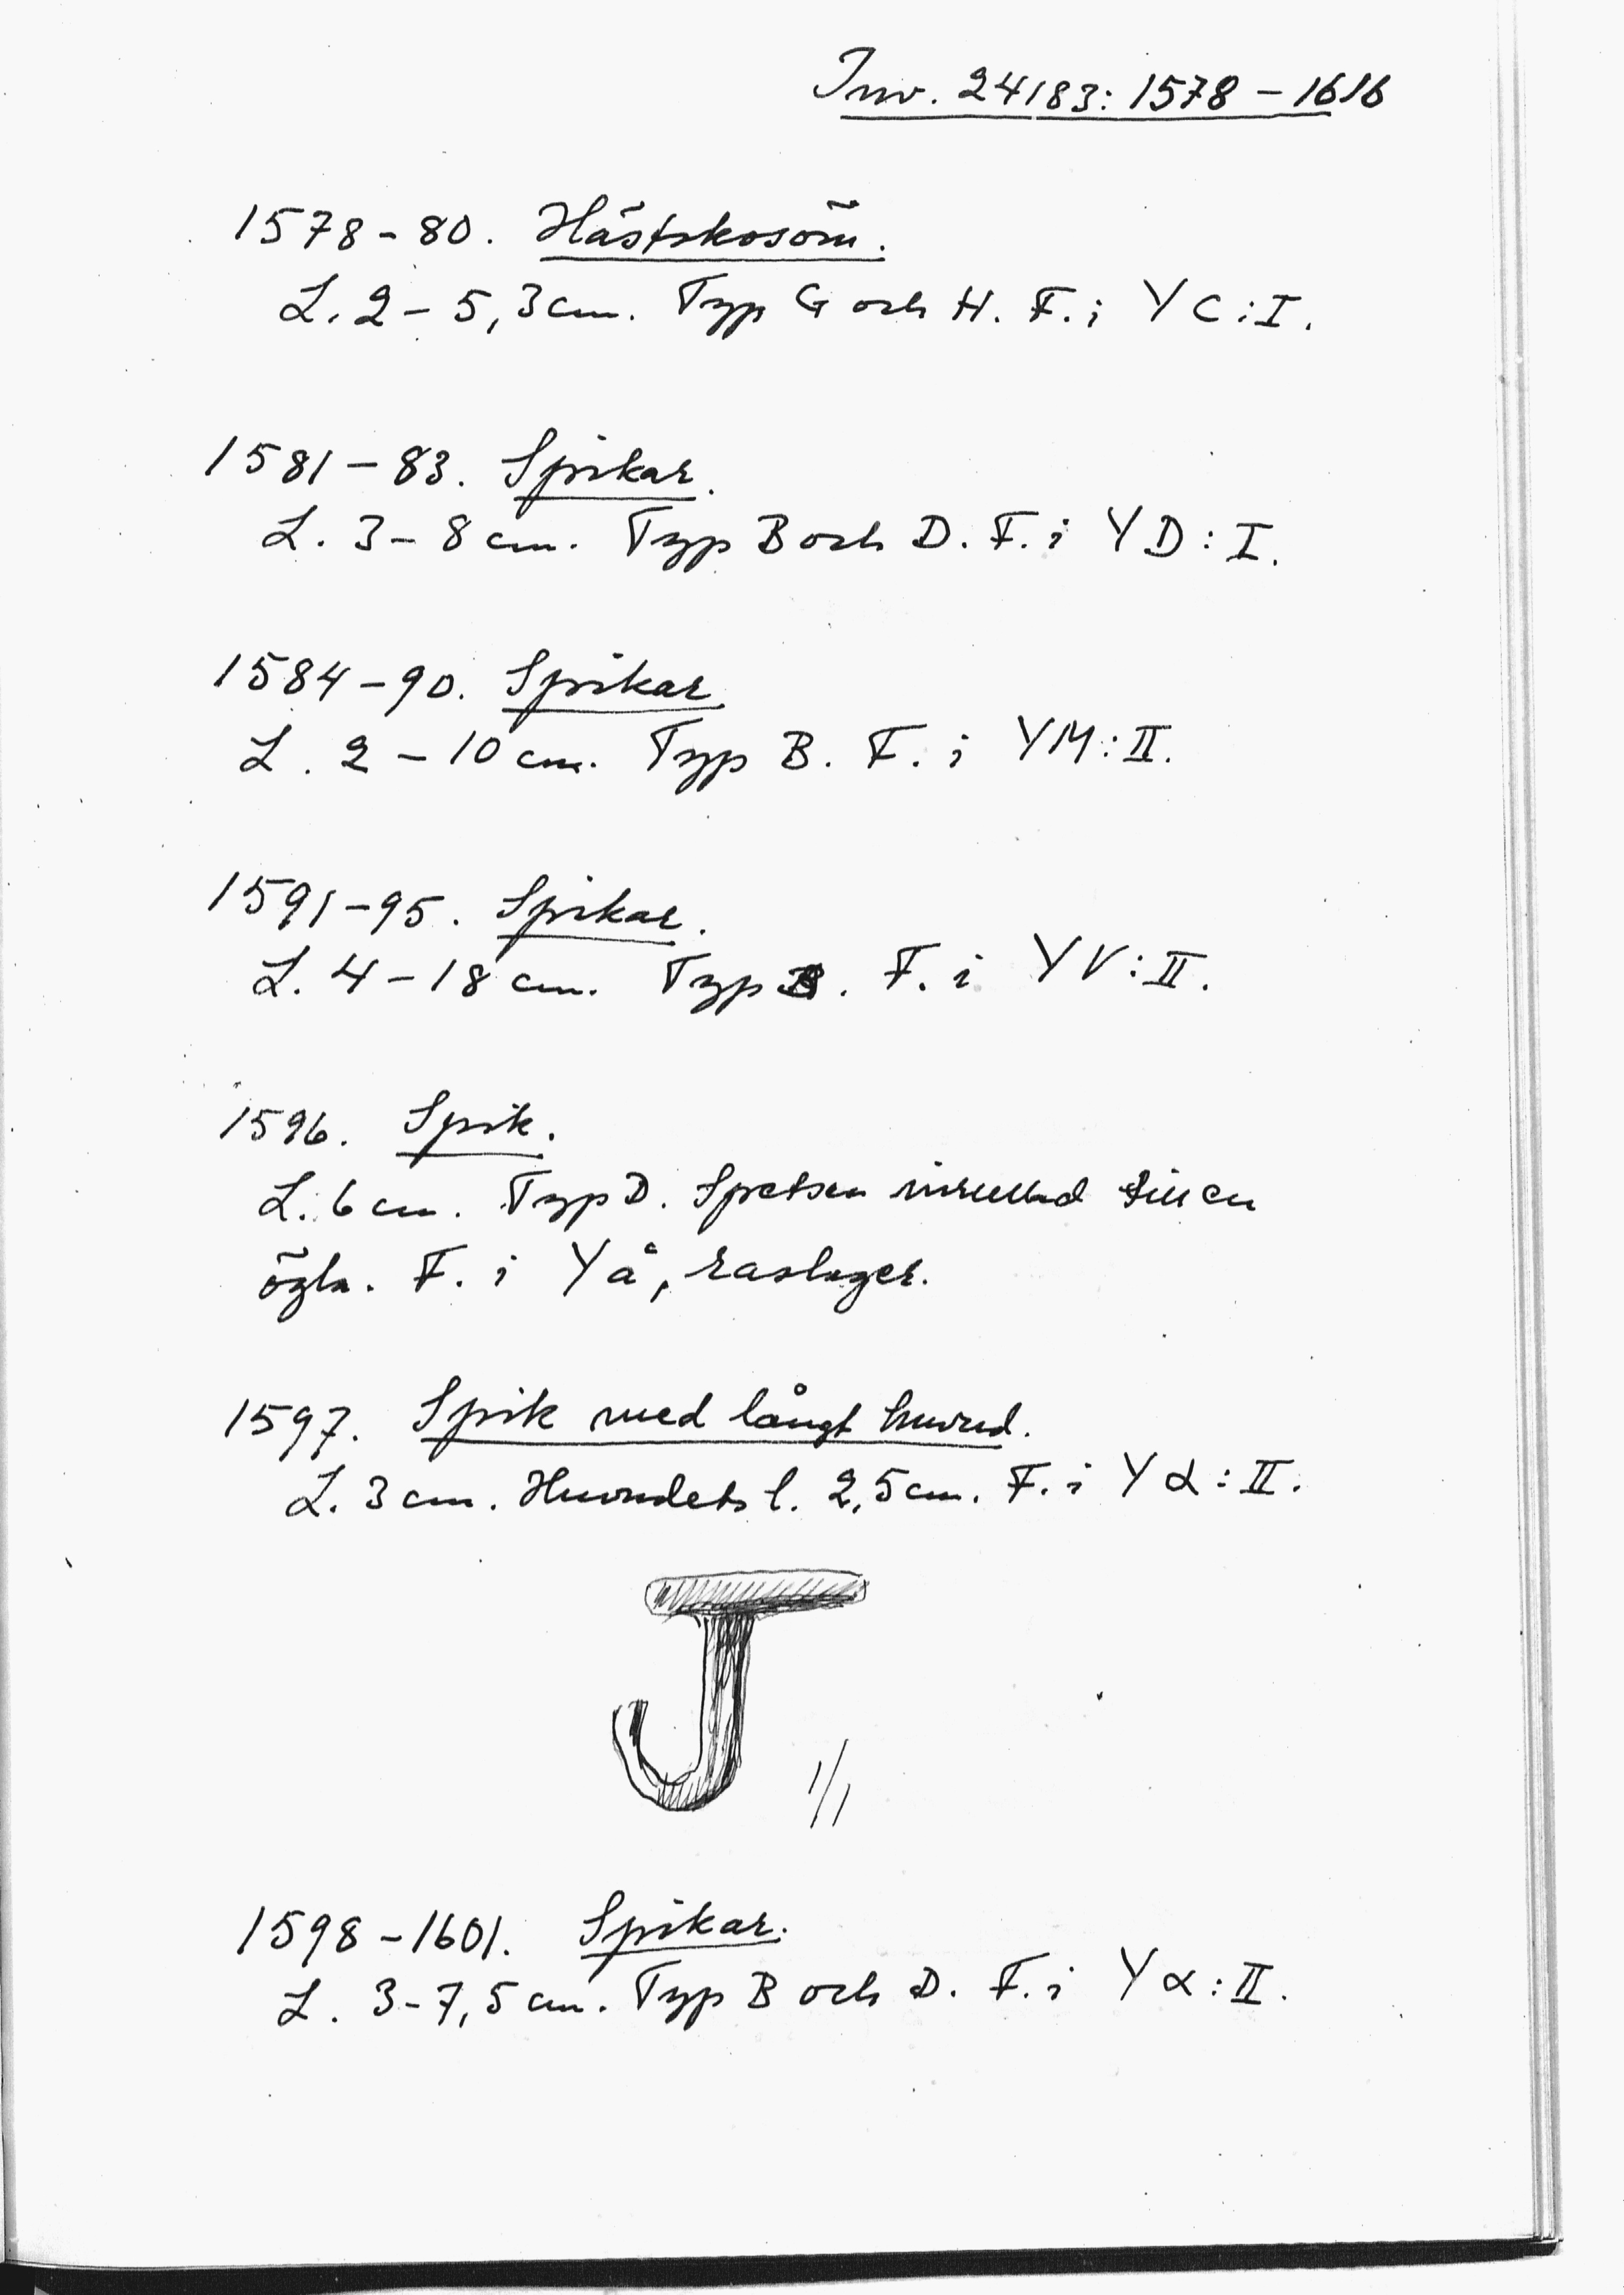 Inv. 24183: 1578 – 1616
1578-80. Hästskosöm.
L. 2 – 5,3 cm. Typ G och H. F. i YC:I.
1581 – 83. Spikar.
L. 3 – 8 cm. Typ B och D. F. i YD:I.
1584 – 90. Spikar
L. 2 – 10 cm. Typ B. F. i YM:II.
1591-95. Spikar.
L. 4 – 18 cm. Typ B. F. i YV:II.
1596. Spik.
L. 6 cm. Typ D. Spetsen till en
ögla. F. i Yå, raslager.
1597. Spik med långt huvud.
L. 3 cm. Huvudets l. 2,5 cm. F. i Yα:II.
1/1
1598 – 1601. Spikar.
L. 3-7,5 cm. Typ B och D. F. i Yα:II.